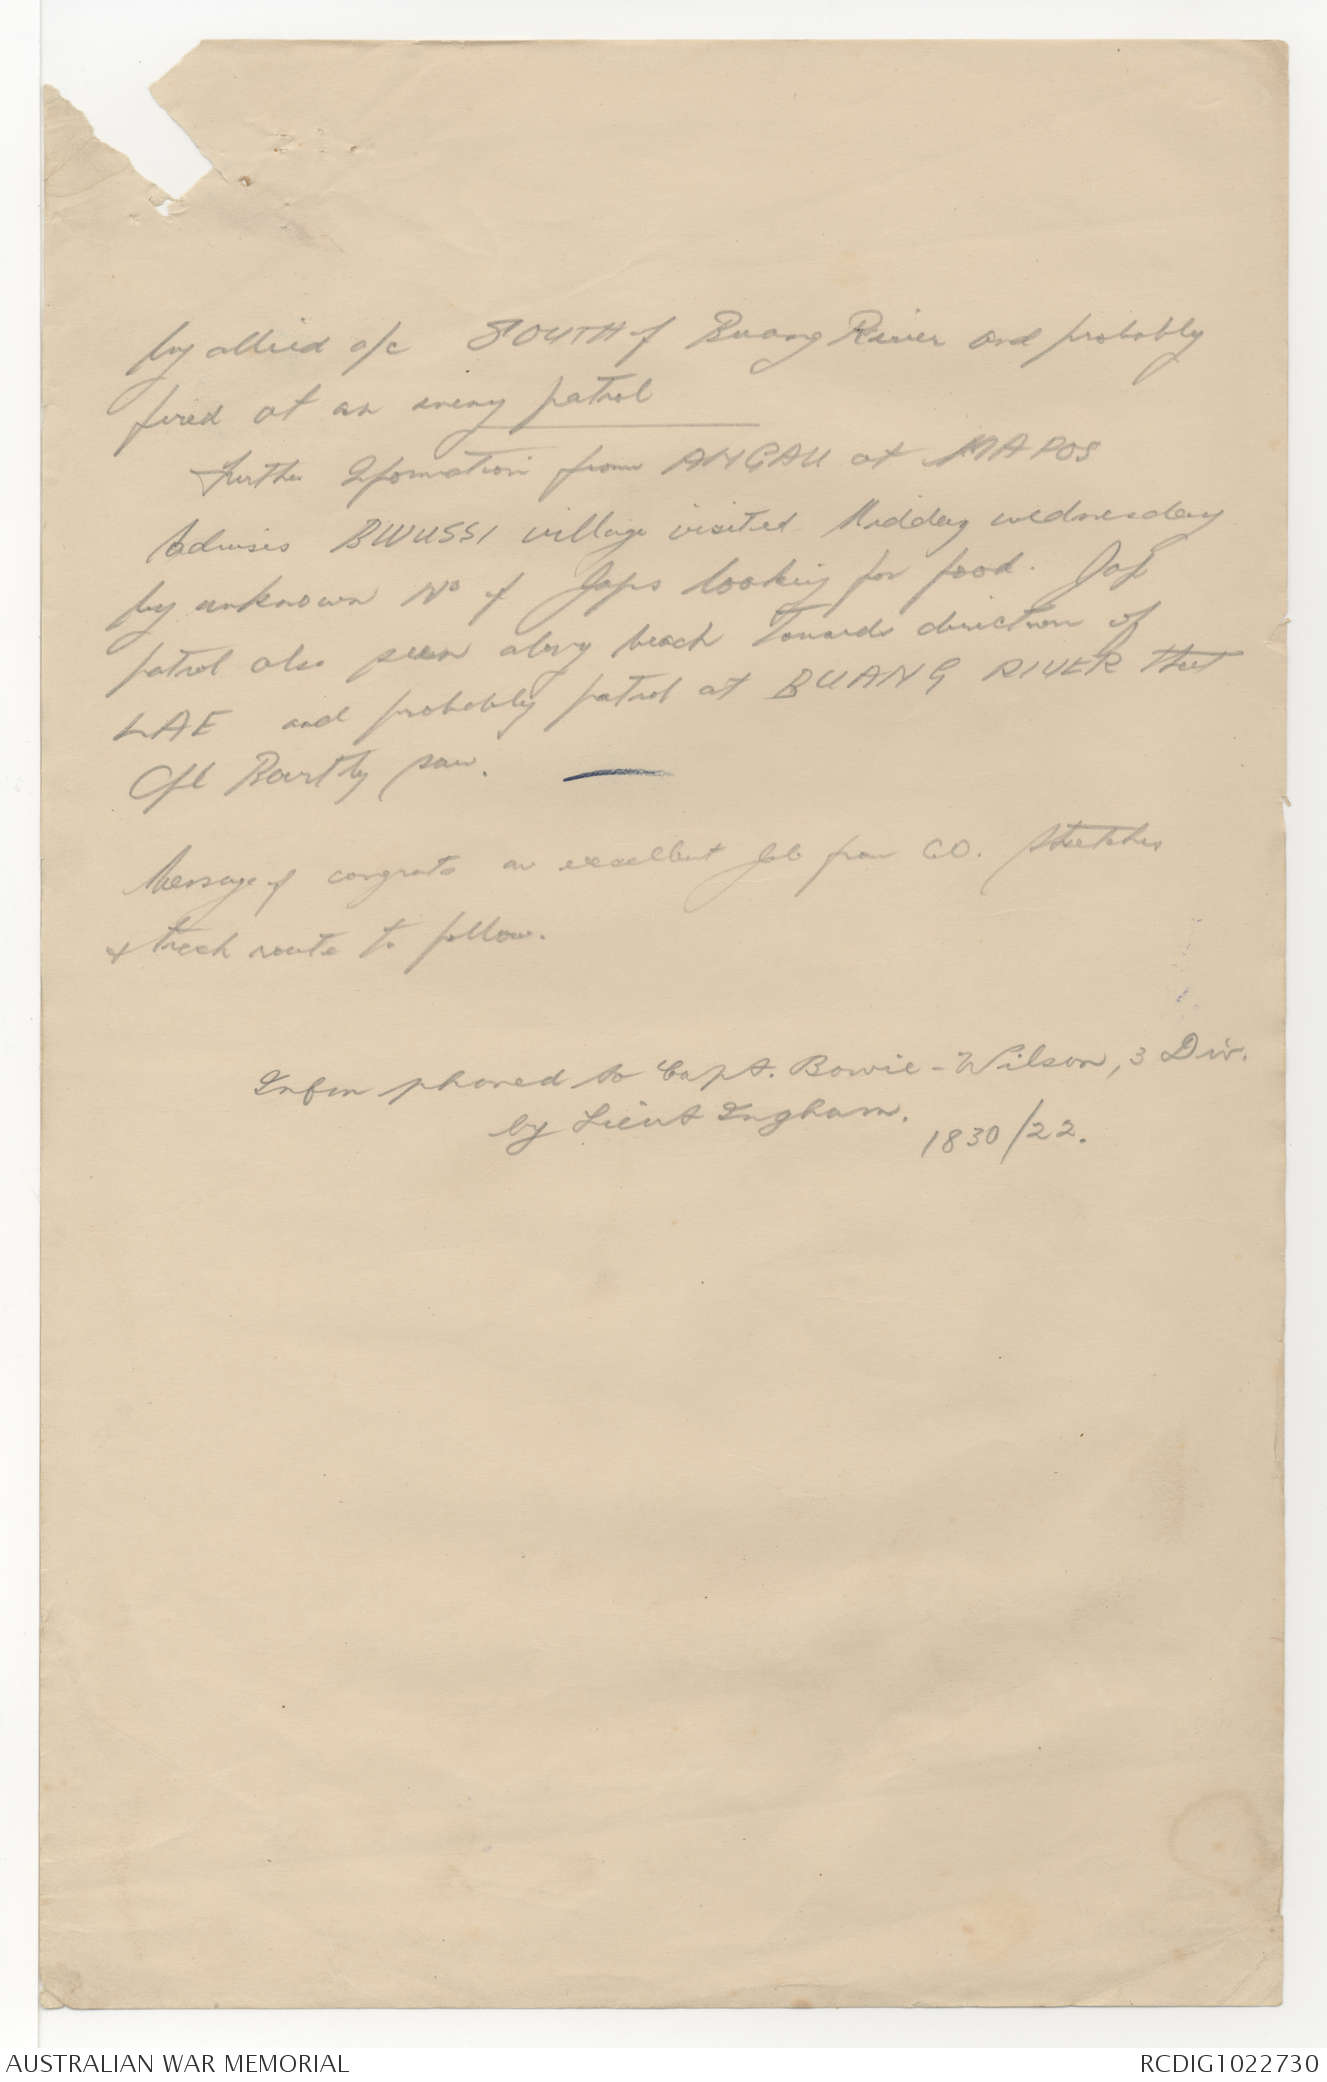 by allied a/c SOUTH of Buang River and probably
fired at an enemy patrol
Further Iformation from ANGAU at MAPOS
Advises BWUSSI village visited Midday wednesday
by unknown No of Japs looking for food. Jap
patrol also seen along beach towards direction of
LAE and probably patrol at BUANG RIVER that
Cpl Bartly saw.
Message of congrats on excellent job from CO. Sketches
& track route to follow.
Infm phoned to Capt. Bowie-Wilson, 3 Div.
by Lieut Ingham.
1830/22.
AUSTRALIAN WAR MEMORIAL
RCDIG1022730